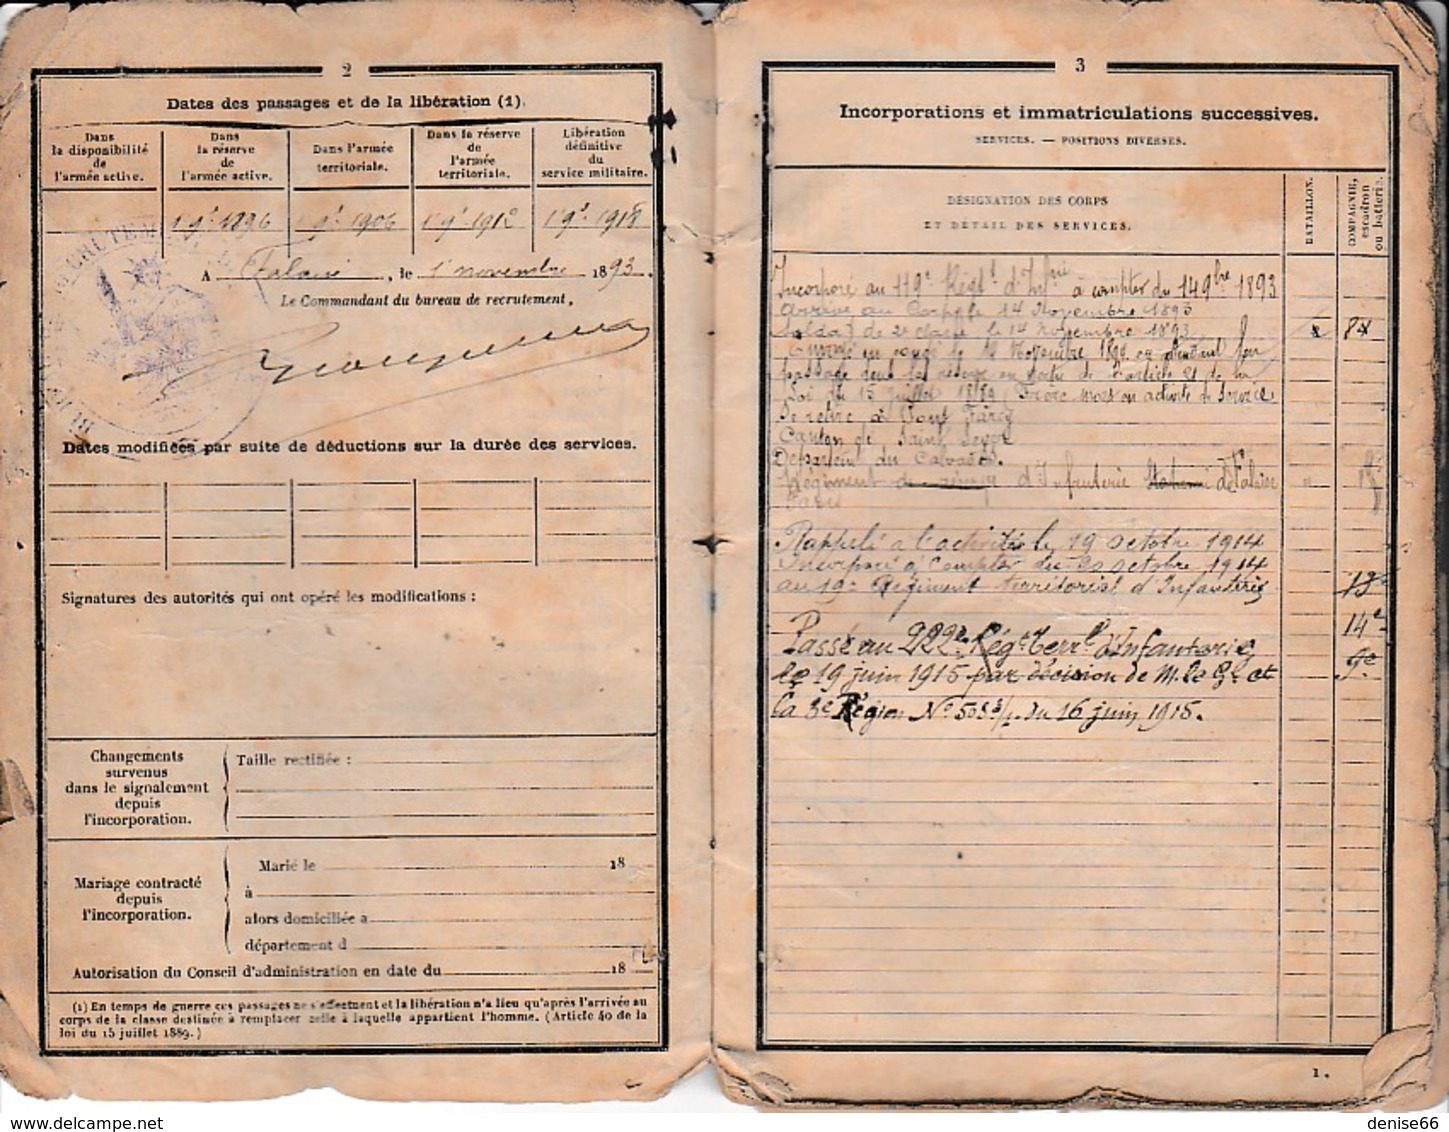 2
Dates des passages et de la libération (1).
Dans la disponibilité de l'armée active.
Dans la réserve de l'armée active.
Dans l'armée territoriale.
Dans la réserve de l'armée territoriale.
Libération définitive du service militaire.
1 9e 1896 1 9e 1906 1 9e 1912 1 9e 1918
A Falaise, le 1 novembre 1893.
Le Commandant du bureau de recrutement,
Dates modifiées par suite de déductions sur la durée des services.
Signatures des autorités qui ont opéré les modifications :
Changements survenus dans le signalement depuis l'incorporation.
Taille rectifiée :
Mariage contracté depuis l'incorporation.
Marié le 18
à
alors domiciliée à
département d
Autorisation du Conseil d'administration en date du 18
(1) En temps de guerre ces passages ne s'effectuent et la libération n'a lieu qu'après l'arrivée au
corps de la classe destinée à remplacer celle à laquelle appartient l'homme. (Article 40 de la
loi du 15 juillet 1889.)
3
Incorporations et immatriculations successives.
SERVICES. — POSITIONS DIVERSES.
DÉSIGNATION DES CORPS
ET DÉTAIL DES SERVICES.
BATAILLON.
COMPAGNIE, escadron ou batterie.
Incorporé au 119e Regt d'Infrie à compter du 14 9bre 1893
Arrivé au Corps le 14 Novembre 1893
Soldat de 2e classe le 14 novembre 1893
en congé le Novembre en attendant son
passage dans la réserve en vertu de l'article 21 de la
Loi du 15 juillet 1889, Frère mort en activité de Service
Se retire à Pont Farcy
Canton de Saint Sever
Département du Calvados.
Régiment d'Infanterie de Falaise
Rappelé à l'activité le 19 octobre 1914
Incorporé à compter du 20 octobre 1914
au 19e Régiment territorial d'Infanterie 13e
14e
Passé au 222e Régt Terrl d'Infanterie
le 19 juin 1915 par décision de M. le Gl ct 9e
la 3e Région No du 16 juin 1915.
1.
denise66